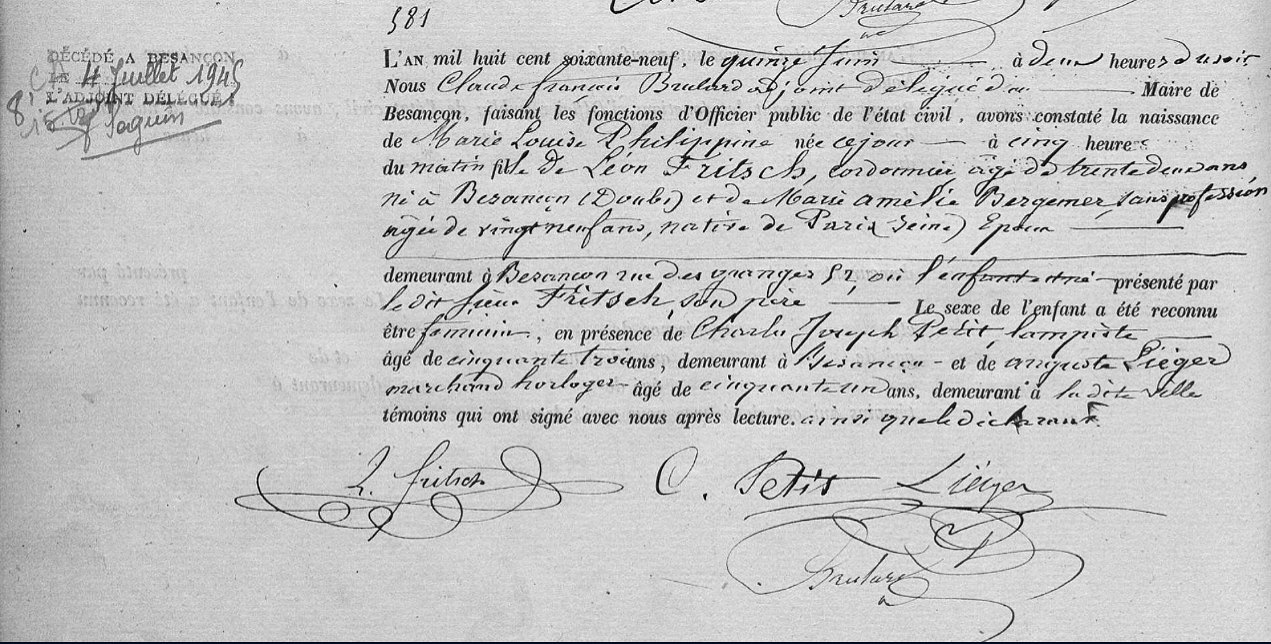 581
DÉCÉDÉ A BESANÇON
LE 4 Juillet 1945
L'ADJOINT DÉLÉGUÉ
Seguin
L'AN mil huit cent soixante-neuf, le quinze Juin à deux heures du soir
Nous Claude françois Brulard adjoint délégué du Maire de
Besançon, faisant les fonctions d'Officier public de l'état civil, avons constaté la naissance
de Marie Louise Philippine née ce jour à cinq heures
du matin fille de Léon Fritsch, cordonnier âgé de trente deux ans
né à Besançon (Doubs) et de Marie amélie Bergemer, sans profession
agée de vingt neuf ans, native de Paris (Seine) Epoux
demeurant à Besançon rue des granges 52, où l'enfant est né présenté par
le dit sieur Fritsch, son père Le sexe de l'enfant a été reconnu
être féminin, en présence de Charles Joseph Petit, lampiste
âgé de cinquante trois ans, demeurant à Besançon - et de auguste Liéger
marchand horloger âgé de cinquante un ans, demeurant à la dite ville
témoins qui ont signé avec nous après lecture. ainsi que le déclarant
L. fritsch C. Petit Liéger
Brulard